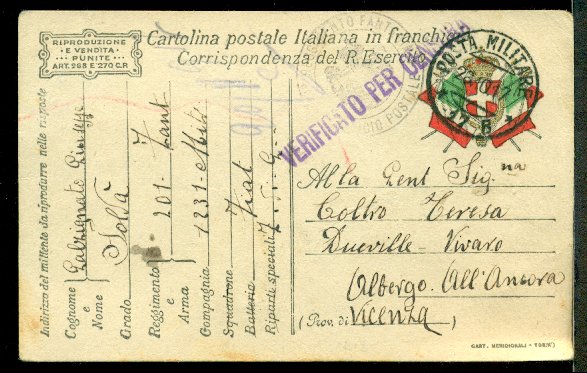 RIPRODUZIONE
E VENDITA
PUNITE
ART. 268 E 270 C.P.
Cartolina postale Italiana in franchigia
Corrispondenza del R. Esercito
VERIFICATO PER CENSURA
POSTA MILITARE
Indirizzo del mittente da riprodurre nelle risposte
Cognome
e
Nome Giuseppe
Grado
Reggimento 201. Fant
e
Arma
Compagnia 1231 Mit
Squadrone
Batteria Fiat
Riparti speciali
Alla Gent Sig.na
Coltro Teresa
Dueville - Vivaro
(Albergo. All'Ancora
(Prov. di Vicenza)
CART. MERIDIONALI -